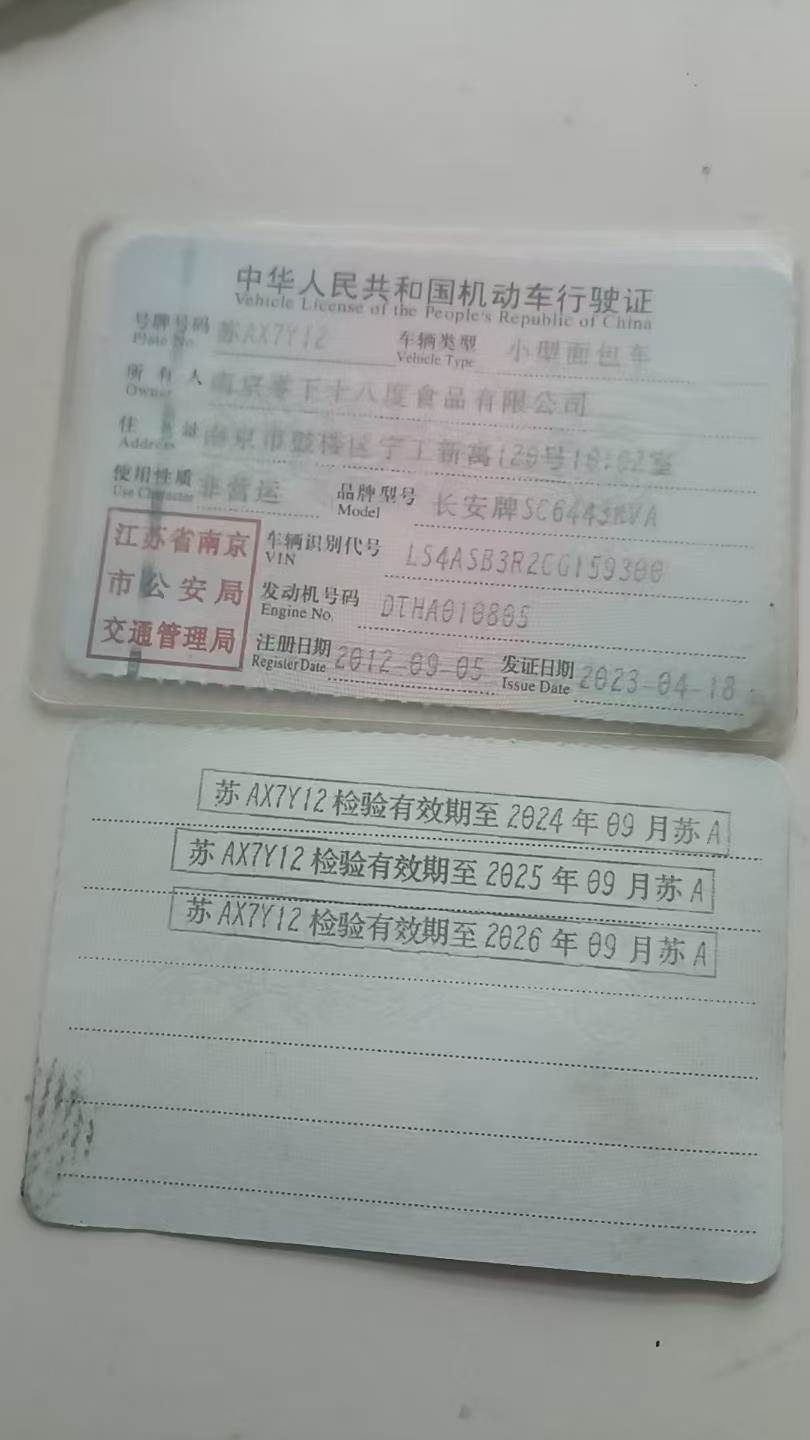 中华人民共和国机动车行驶证
Vehicle License of the People's Republic of China
号牌号码 苏AX7Y12 车辆类型 小型面包车
Plate No. Vehicle Type
所有人 南京零下十八度食品有限公司
Owner
住址 南京市鼓楼区宁工新寓120号
Address
使用性质 非营运 品牌型号 长安牌SC6443
Use Character Model
江苏省南京
市公安局
交通管理局
车辆识别代号 LS4ASB3R2CG159300
VIN
发动机号码 DTHA010805
Engine No.
注册日期 2012-09-05 发证日期 2023-04-18
Register Date Issue Date
苏AX7Y12检验有效期至2024年09月苏A
苏AX7Y12检验有效期至2025年09月苏A
苏AX7Y12检验有效期至2026年09月苏A